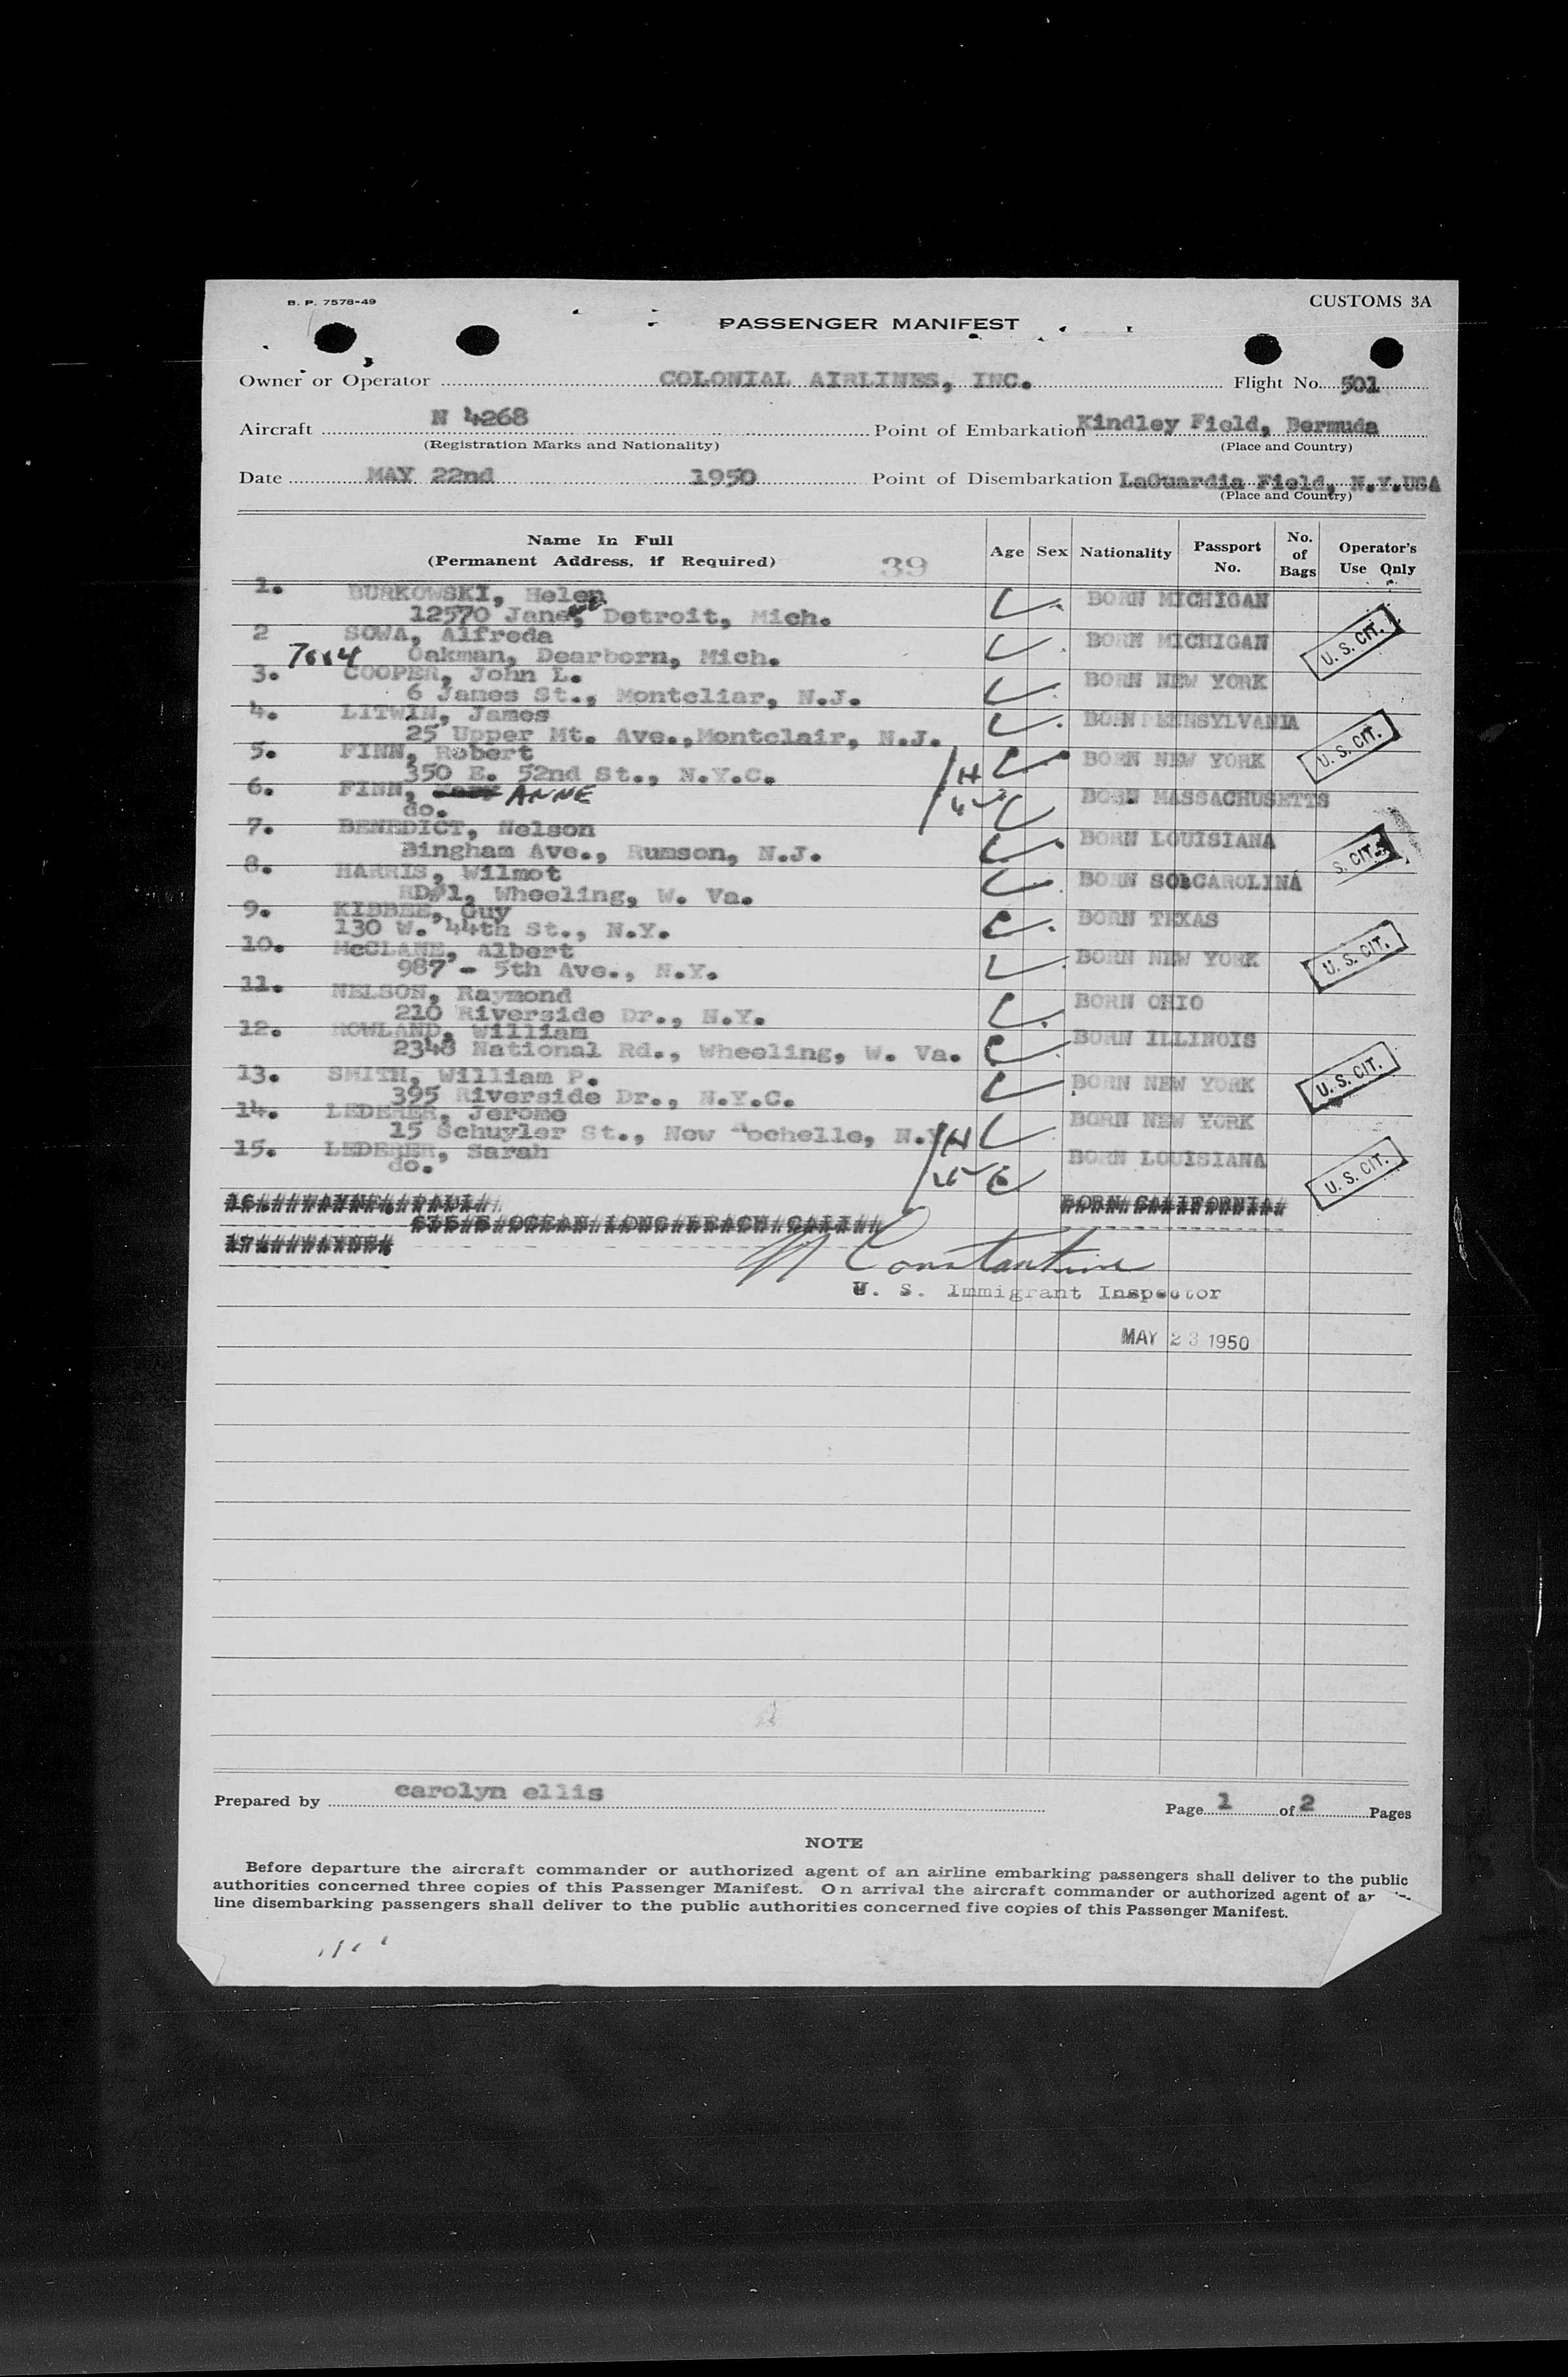 B. P. 7578-49
CUSTOMS 3A
PASSENGER MANIFEST
Owner or Operator COLONIAL AIRLINES, INC. Flight No. 501
Aircraft N 4268 Point of Embarkation Kindley Field, Bermuda
(Registration Marks and Nationality) (Place and Country)
Date MAY 22nd 1950 Point of Disembarkation LaGuardia Field, N.Y.USA
(Place and Country)
Name In Full
(Permanent Address, if Required) 39 Age Sex Nationality Passport No. No. of Bags Operator's Use Only
1. BURKOWSKI, Helen BORN MICHIGAN
12570 Detroit, Mich.
U. S. CIT.
2 SOWA, Alfreda BORN MICHIGAN
7004 Oakman, Dearborn, Mich.
3. COOPER, John L. BORN NEW YORK
6 James St., Montcliar, N.J.
4. LITWIN, James BORN PENNSYLVANIA
25 Upper Mt. Ave.,Montclair, N.J.
U. S. CIT.
5. FINN, Robert BORN NEW YORK
350 E. 52nd St., N.Y.C. H
6. FINN, ANNE BORN MASSACHUSETTS
do.
7. BENEDICT, Nelson BORN LOUISIANA
Bingham Ave., Rumson, N.J.
S. CIT.
8. HARRIS, Wilmot BORN SO.CAROLINA
RD#1, Wheeling, W. Va.
9. KIBBEE, Guy BORN TEXAS
130 W. 44th St., N.Y.
U. S. CIT.
10. McCLANE, Albert BORN NEW YORK
987 - 5th Ave., N.Y.
11. NELSON, Raymond BORN OHIO
210 Riverside Dr., N.Y.
12. ROWLAND, William BORN ILLINOIS
2348 National Rd., Wheeling, W. Va.
13. SMITH, William P. BORN NEW YORK
395 Riverside Dr., N.Y.C.
U. S. CIT.
14. LEDERER, Jerome BORN NEW YORK
15 Schuyler St., New Rochelle, N.Y H
15. LEDERER, Sarah BORN LOUISIANA
do.
U. S. CIT.
BORN CALIFORNIA
OCEAN LONG BEACH CALI
N Constantine
U. S. Immigrant Inspector
MAY 23 1950
Prepared by carolyn ellis Page 1 of 2 Pages
NOTE
Before departure the aircraft commander or authorized agent of an airline embarking passengers shall deliver to the public
authorities concerned three copies of this Passenger Manifest. On arrival the aircraft commander or authorized agent of
line disembarking passengers shall deliver to the public authorities concerned five copies of this Passenger Manifest.